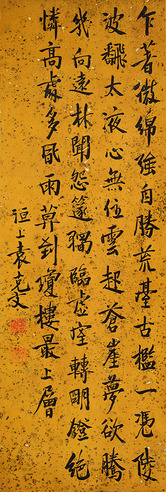 乍著微綿強自勝荒基古檻一憑陵
波飜太夜心無住雲起蒼崖夢欲騰
幾向遠林聞怨篴獨臨虛室轉明鐙絕
憐高處多風雨莫到瓊樓最上層
洹上袁克文